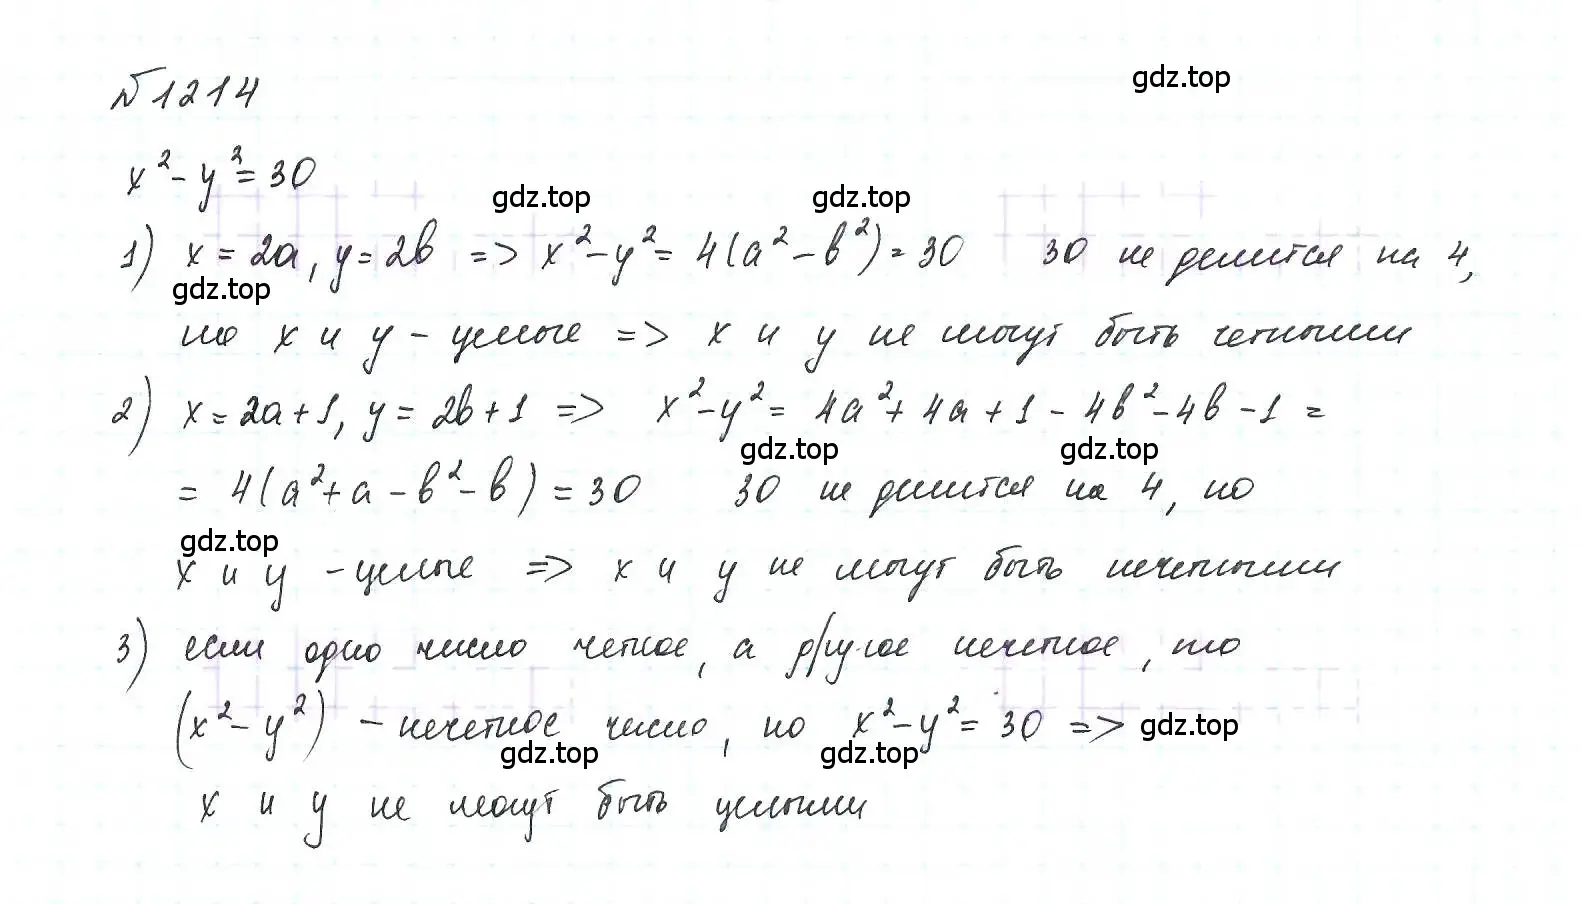 №1214
gdz.top
x² - y² = 30
gdz.top gdz.top
1) x = 2a, y = 2b => x² - y² = 4(a² - b²) = 30 30 не делится на 4,
gdz.top
но x и y - целые => x и y не могут быть четными
2) x = 2a + 1, y = 2b + 1 => x² - y² = 4a² + 4a + 1 - 4b² - 4b - 1 =
gdz.top gdz.top
= 4(a² + a - b² - b) = 30 30 не делится на 4, но
gdz.top
x и y - целые => x и y не могут быть нечетными
3) если одно число четное, а другое нечетное, то
(x² - y²) - нечетное число, но x² - y² = 30 => gdz.top
gdz.top gdz.top
x и y не могут быть целыми